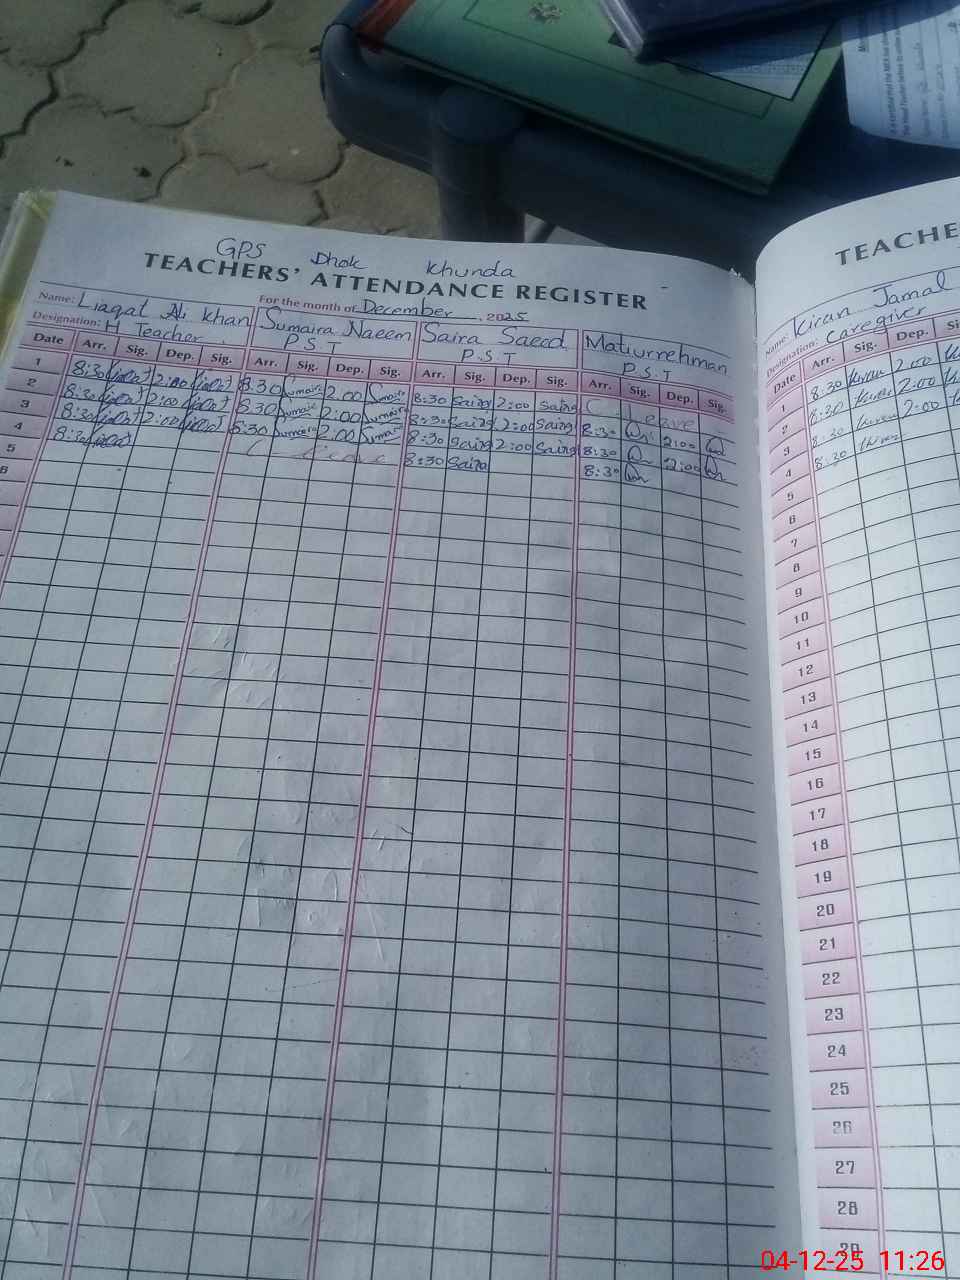 GPS Dhok Khunda
TEACHERS' ATTENDANCE REGISTER
For the month of December, 2025
Name: Liaqat Ali Khan Sumaira Naeem Saira Saeed Matiurrehman
Designation: H Teacher P.S.T P.S.T P.S.T
Date Arr. Sig. Dep. Sig. Arr. Sig. Dep. Sig. Arr. Sig. Dep. Sig. Arr. Sig. Dep. Sig.
1 8:30 2:00 8:30 Sumaira 2:00 Sumaira 8:30 Saira 2:00 Saira C Leave
2 8:30 2:00 8:30 Sumaira 2:00 Sumaira 8:30 Saira 2:00 Saira 8:30 2:00
3 8:30 2:00 8:30 Sumaira 2:00 Sumaira 8:30 Saira 2:00 Saira 8:30 2:00
4 8:30 C Leave 8:30 Saira 8:30
5
6
TEACHE
Name: Kiran Jamal
Designation: Caregiver
Date Arr. Sig. Dep. Si
1 8:30 Kiran 2:00
2 8:30 Kiran 2:00
3 8:30 Kiran 2:00
4 8:30 Kiran
5
6
7
8
9
10
11
12
13
14
15
16
17
18
19
20
21
22
23
24
25
26
27
28
29
04-12-25 11:26